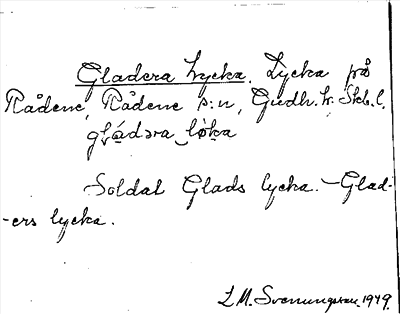 Gladera Lycka. Lycka på
Rådene, Rådene s:n, Gudh. h. Skb. l.
gládəra løka
Soldat Glads lycka. – Glad-
-ers lycka.
L.M. Svenungsson. 1949.